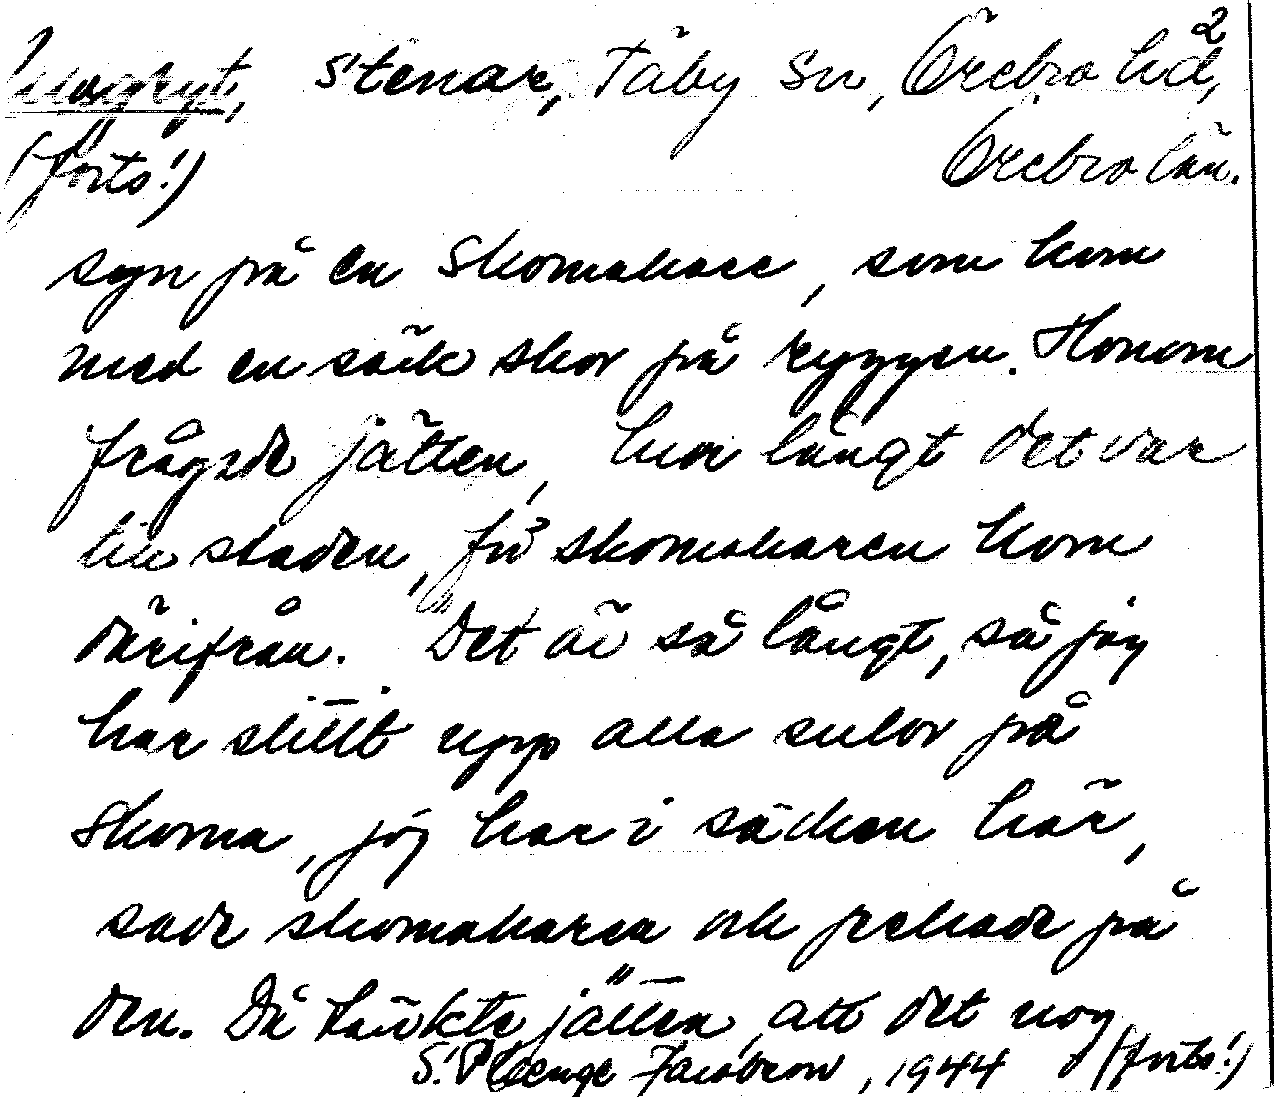 2
stenar, Täby sn, Örebro hd,
(forts!) Örebro län.
syn på en skomakare, som kom
med en säck skor på ryggen. Honom
frågade jätten, hur långt det var
till staden, för skomakaren kom
därifrån. "Det är så långt, så jag
har slitit upp alla sulor på
skorna, jag har i säcken här,
sade skomakaren och pekade på
den. Då tänkte jätten, att det nog
S. Plenge Jacobson, 1944 (forts!)